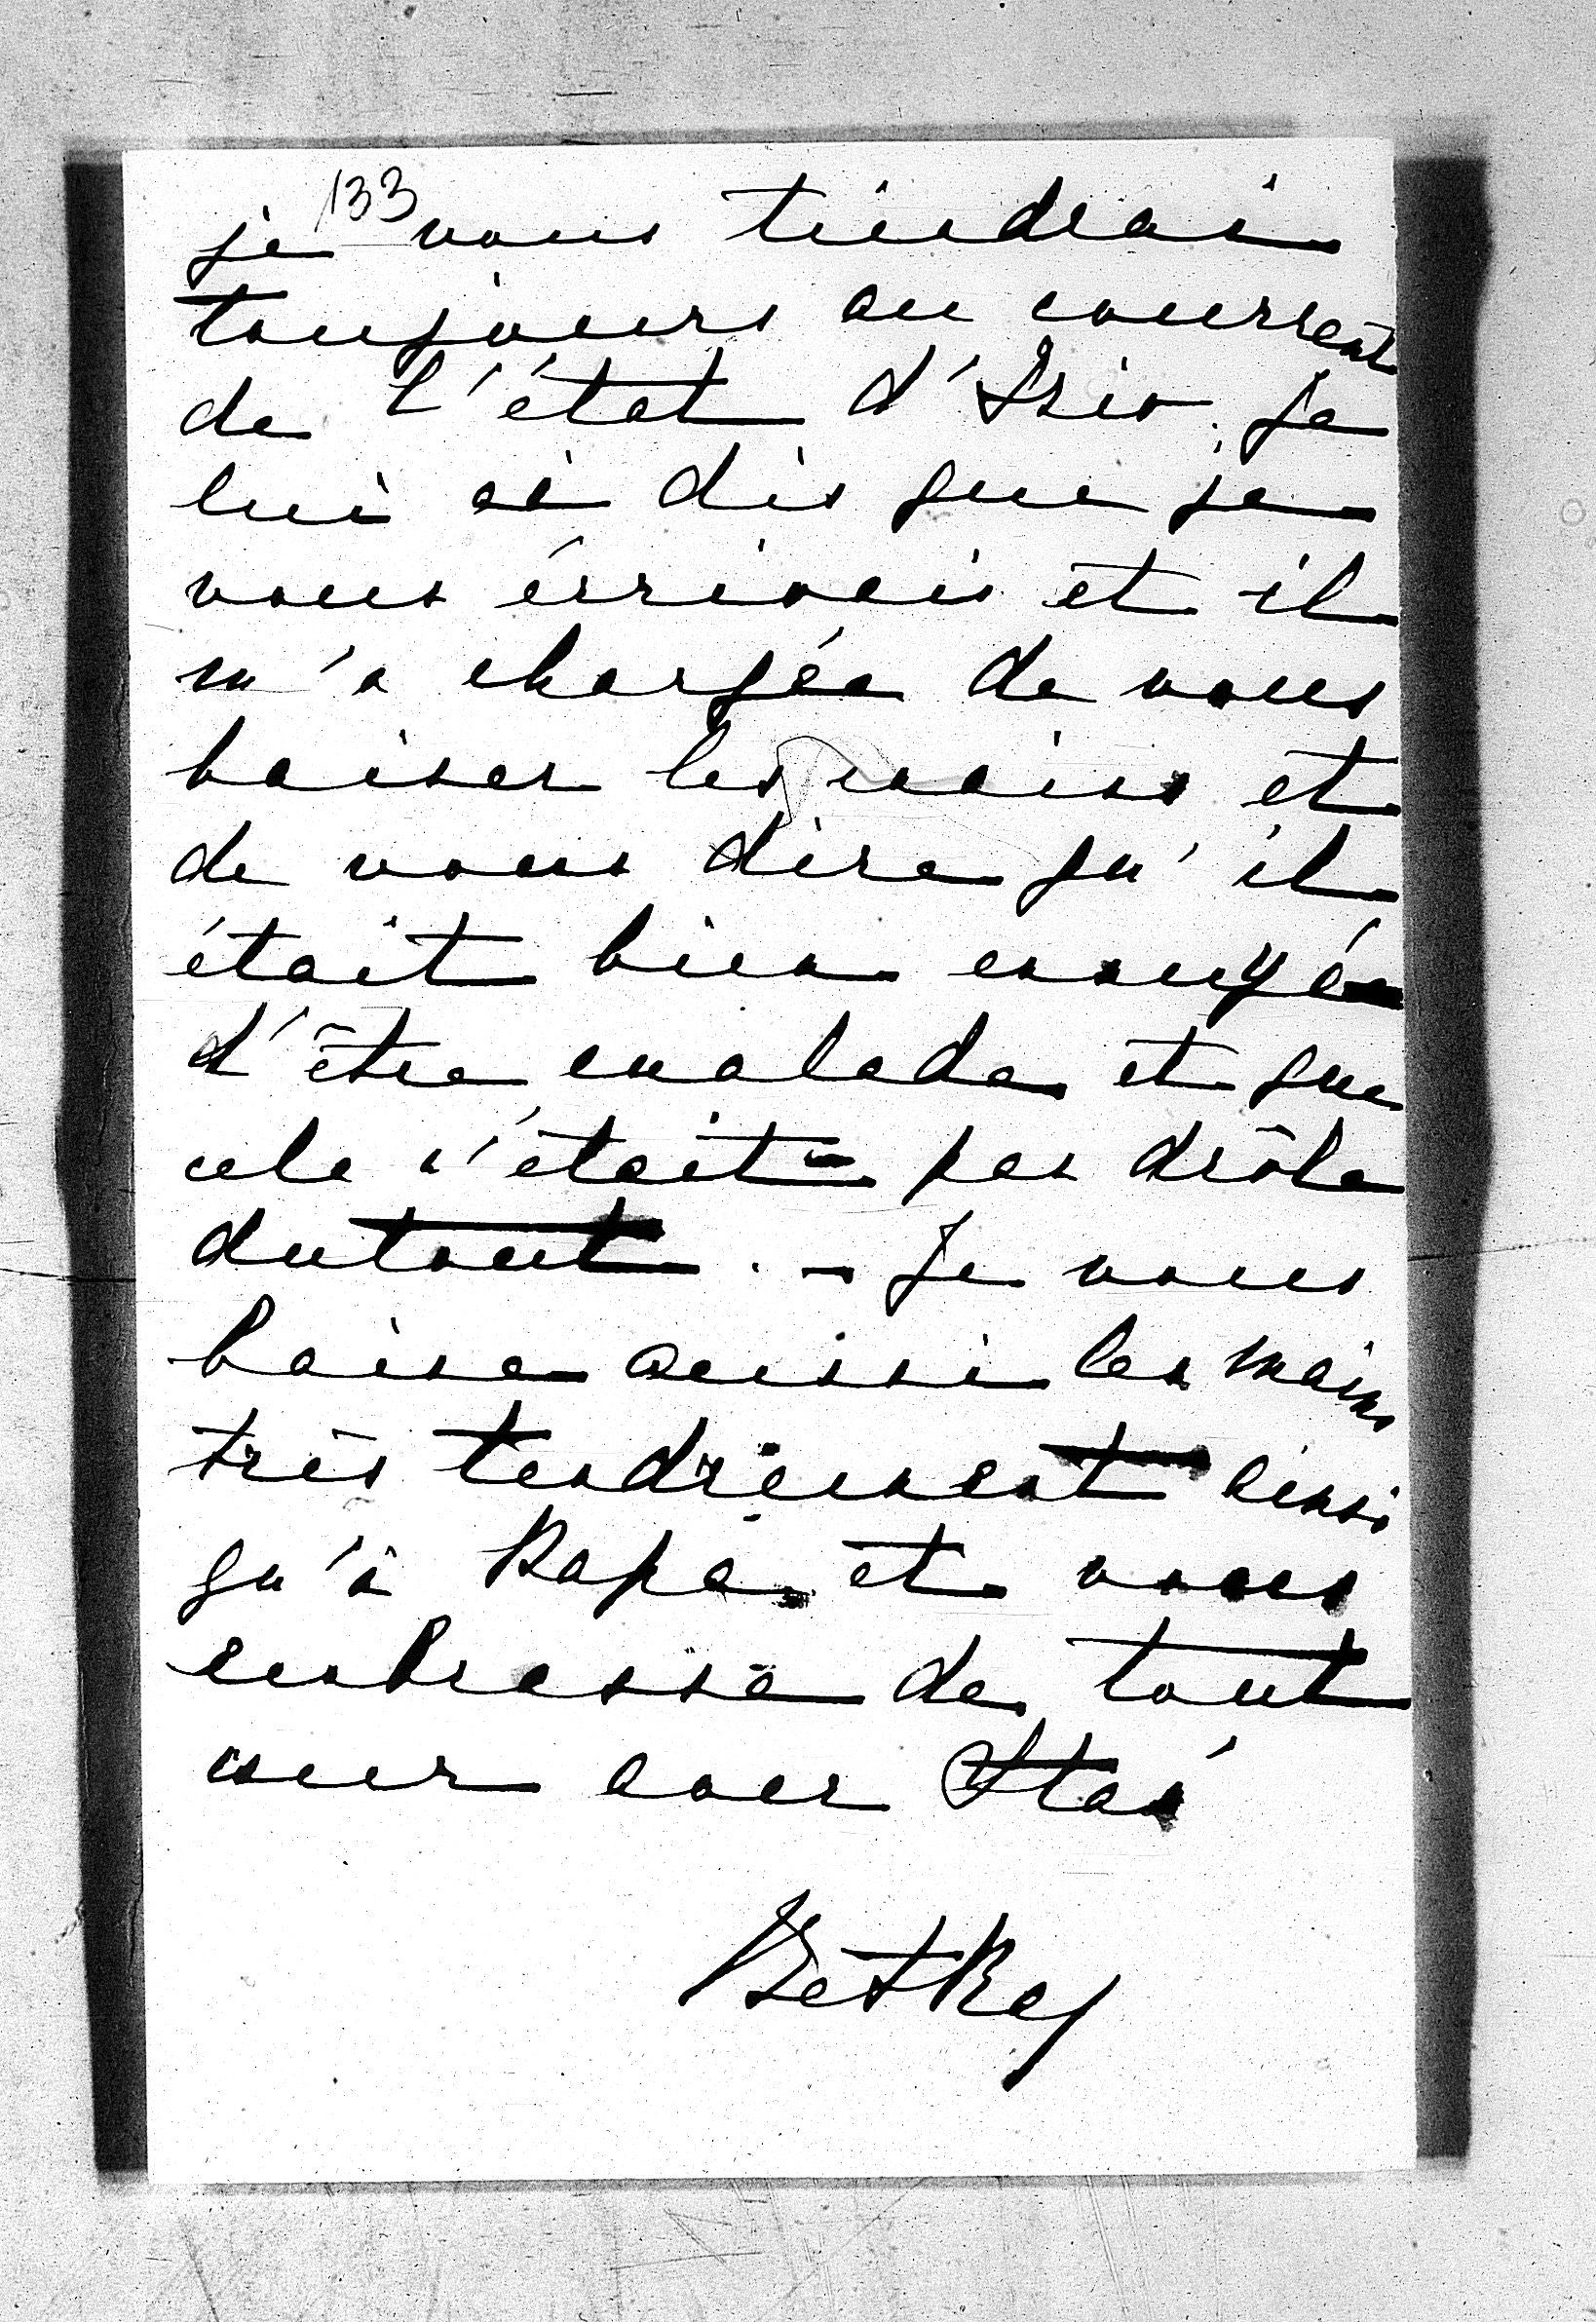 133
je vous tiendrai
toujours au courrent
de l'état d'Isio. Je
lui ai dis que je
vous écrivais et il
m'a chargée de vous
baiser les mains et
de vous dire qu'il
était bien ennuyé
d'être malade et que
cela n'était pas drôle
dutout. – Je vous
baise aussi les mains
très tendrement ainsi
qu'à Papa et vous
embrasse de tout
cœur avec Stas
Betka